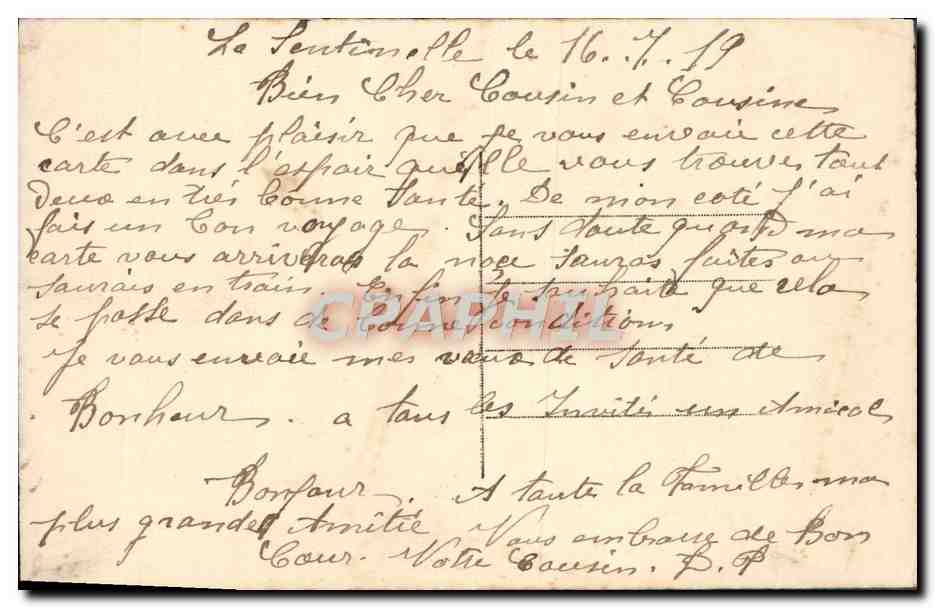 La Sentinelle le 16.7.19
Bien Cher Cousin et Cousine
C'est avec plaisir que je vous envoie cette
carte dans l'espoir qu'elle vous trouve tout
deux en très bonne santé. De mon coté j'ai
fais un bon voyage. Sans doute quand ma
carte vous arriveras la noce sauras faites ou
saurais en train. Enfin je souhaite que cela
se passe dans de bonne conditions
Je vous envoie mes vœux de santé de
Bonheur. a tous les Invités un Amical
Bonjour. A toute la Famille ma
plus grande Amitié Vous embrasse de Bon
Cœur. Votre Cousin. D. P
CPAPHIL